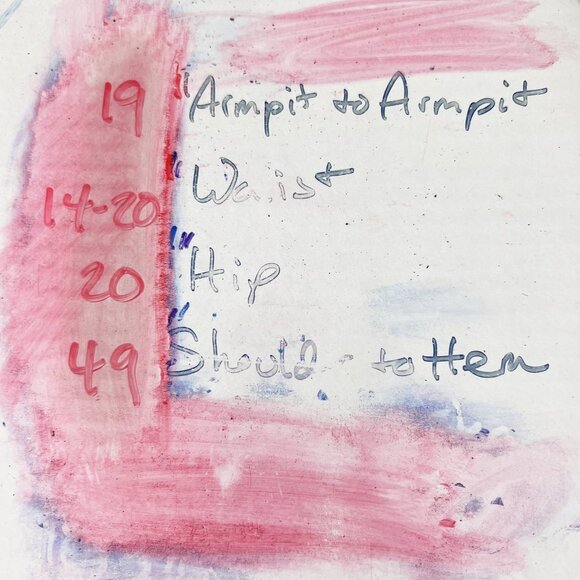 19" Armpit to Armpit
14-20" Waist
20" Hip
49" Should - to Hem